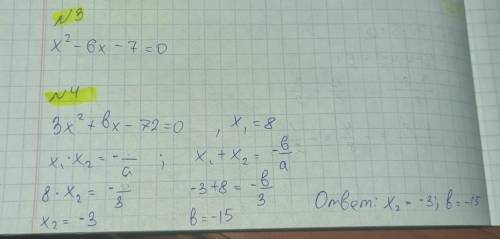 №3
x² - 6x - 7 = 0
№4
3x² + bx - 72 = 0 , x₁ = 8
x₁ · x₂ = - –/a ; x₁ + x₂ = -b/a
8 · x₂ = - –/3 -3 + 8 = -b/3
x₂ = -3 b = -15 Ответ: x₂ = -3; b = -15